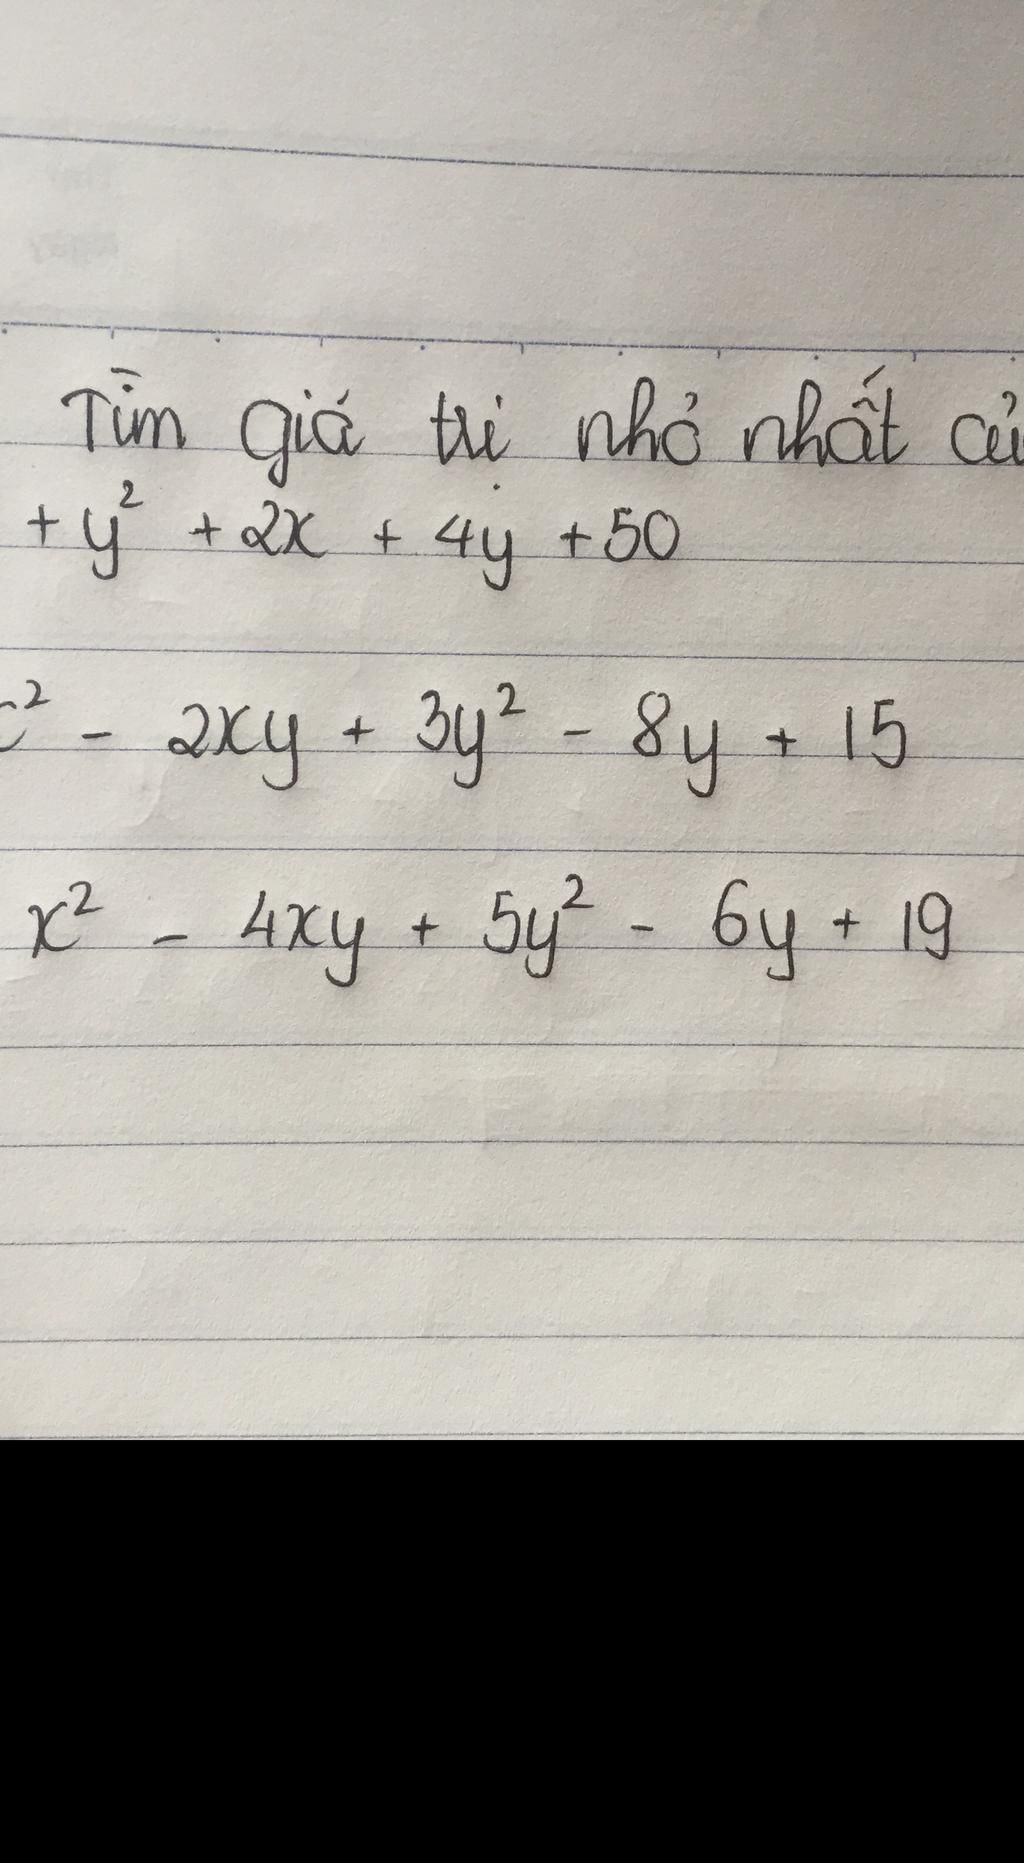 Tìm giá trị nhỏ nhất củ
+ y² + 2x + 4y + 50
² - 2xy + 3y² - 8y + 15
x² - 4xy + 5y² - 6y + 19